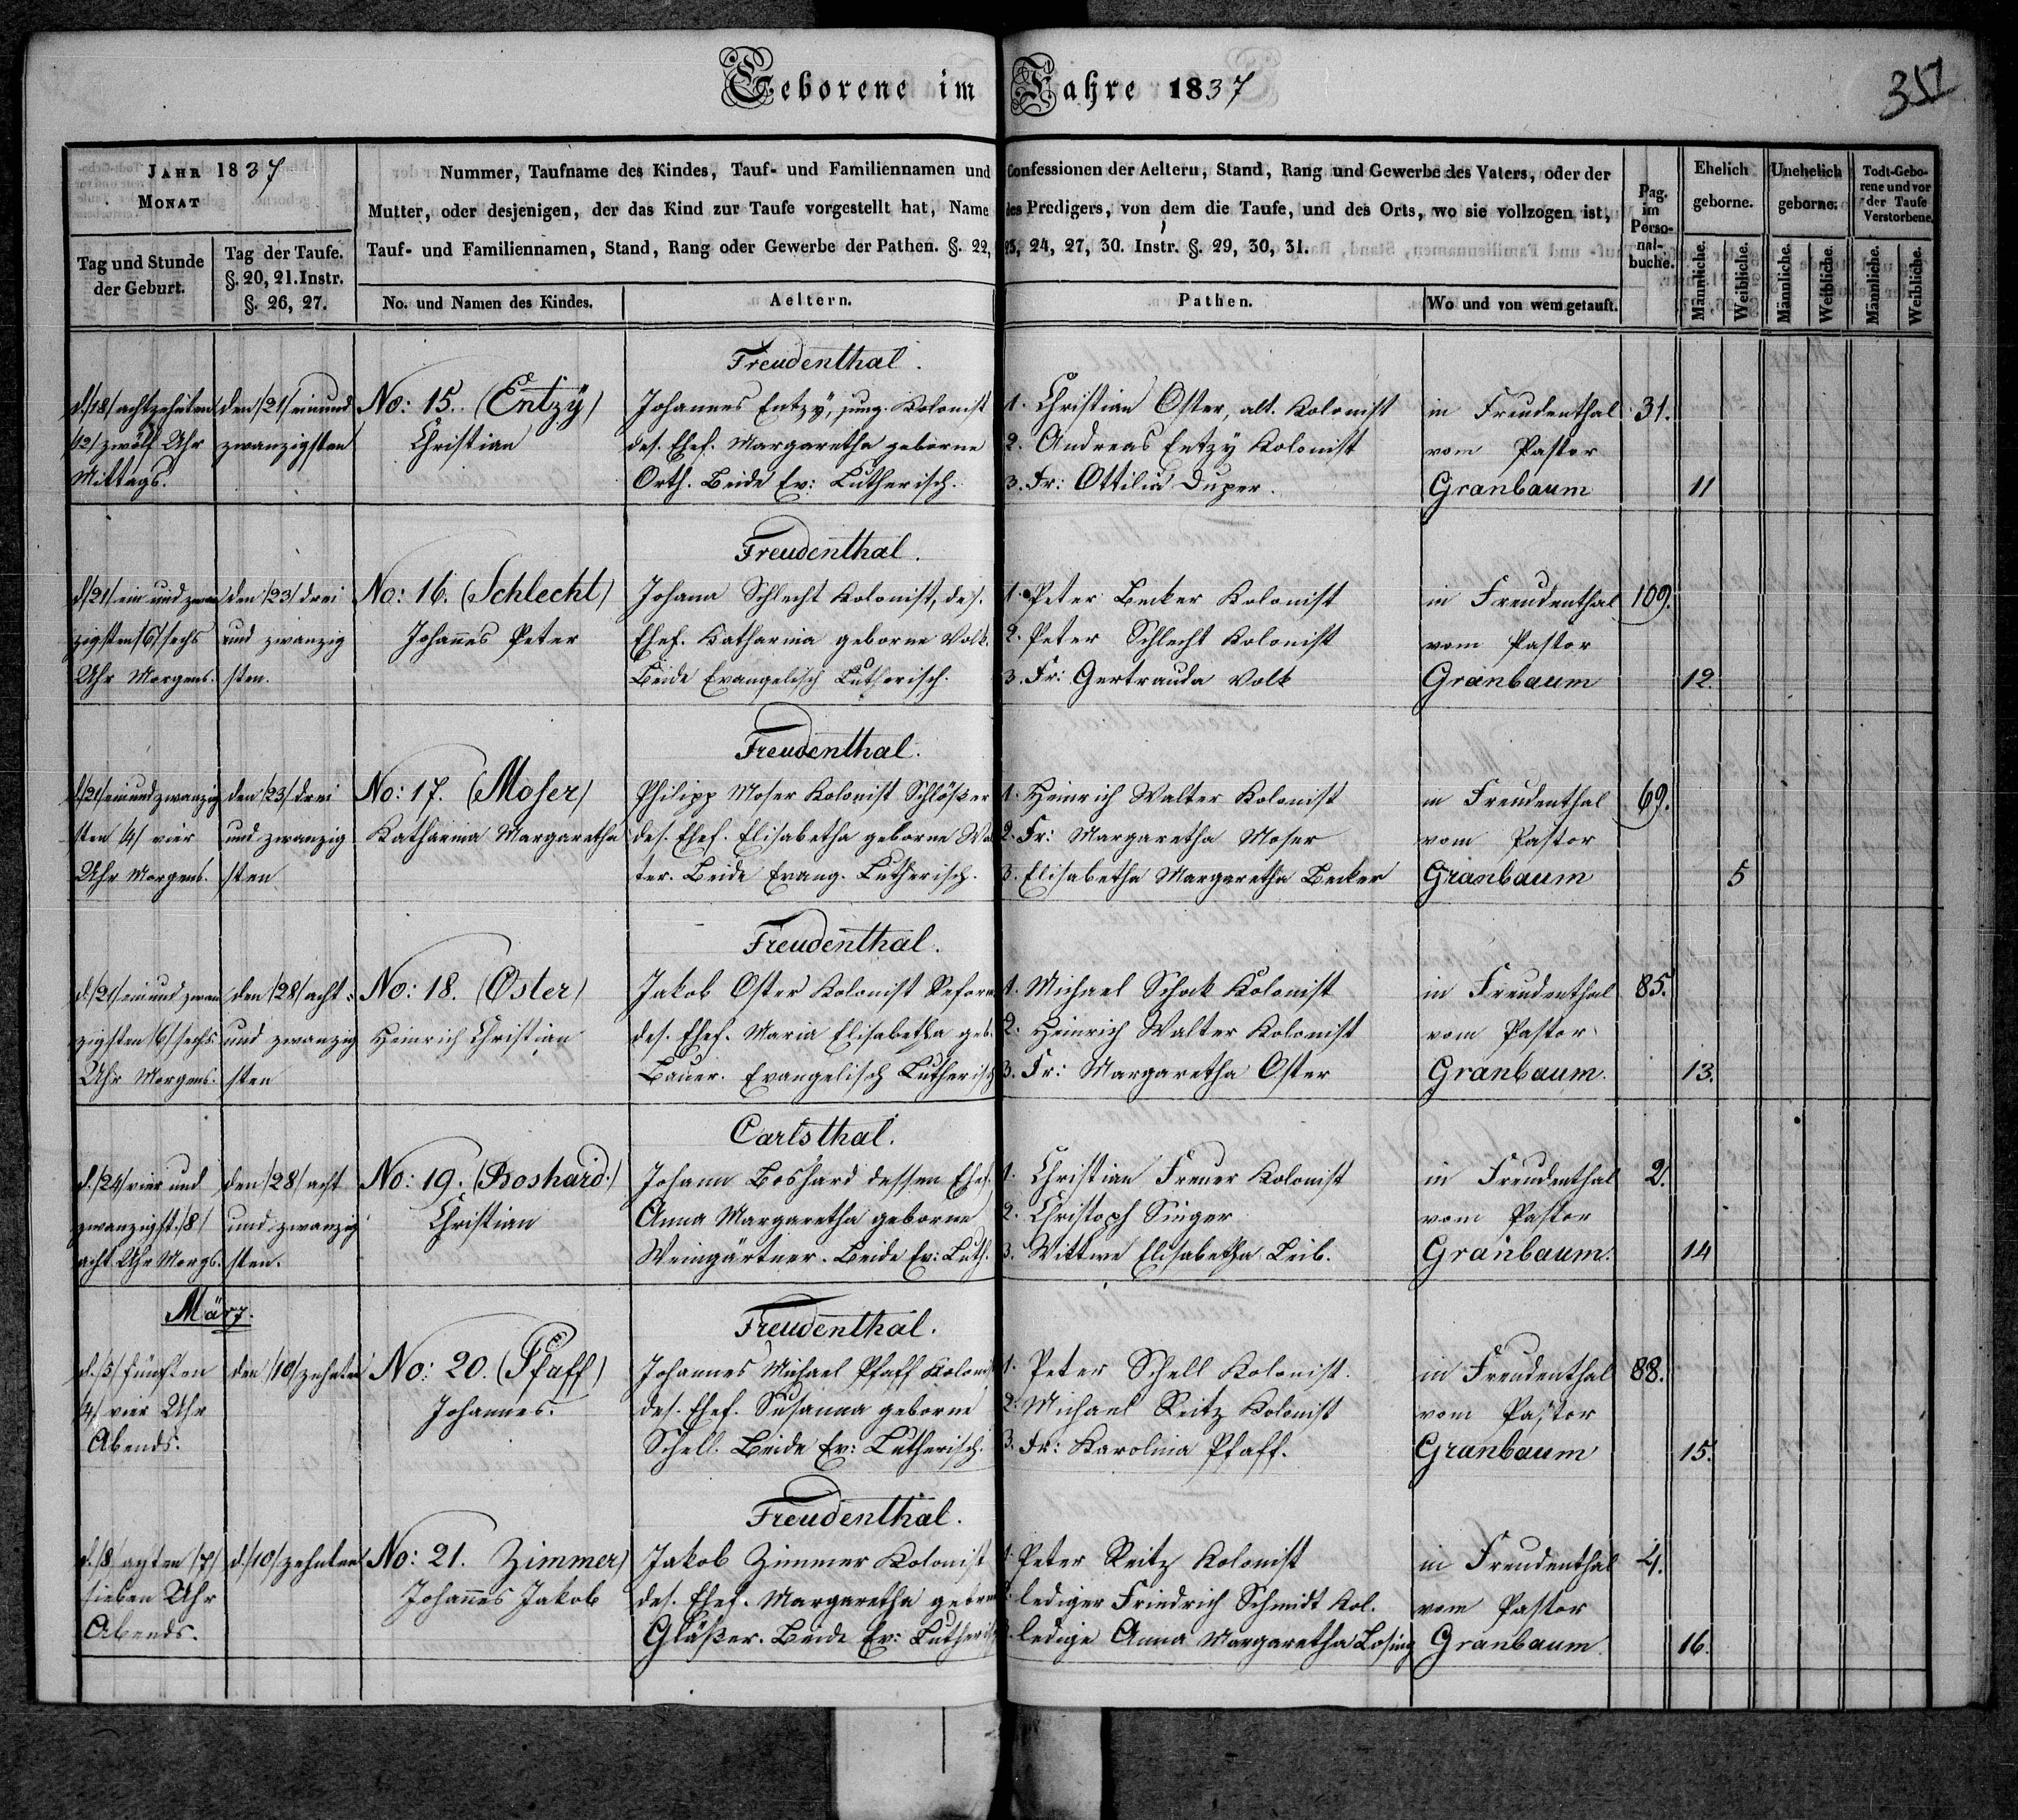 Geborene im Jahre 1837
351
JAHR 1837
MONAT
Tag und Stunde der Geburt.
Tag der Taufe. §. 20, 21. Instr. §. 26, 27.
Nummer, Taufname des Kindes, Tauf- und Familiennamen und Confessionen der Aeltern, Stand, Rang und Gewerbe des Vaters, oder der
Mutter, oder desjenigen, der das Kind zur Taufe vorgestellt hat, Name des Predigers, von dem die Taufe, und des Orts, wo sie vollzogen ist,
Tauf- und Familiennamen, Stand, Rang oder Gewerbe der Pathen. §. 22, 23, 24, 27, 30. Instr. §. 29, 30, 31.
No. und Namen des Kindes.
Aeltern.
Pathen.
Wo und von wem getauft.
Pag. im Perso-nal-buche.
Ehelich geborne.
Unehelich geborne.
Todt-Gebo-rene und vor der Taufe Verstorbene.
Männliche. Weibliche. Männliche. Weibliche. Männliche. Weibliche.
Freudenthal.
d./18/ achtzehnten den /21/ ein und No: 15. (Entzÿ) Johannes Entzÿ, jung. Kolonist 1. Christian Oster, alt. Kolonist in Freudenthal 31.
/12/ zwölf Uhr zwanzigsten Christian des. Ehef. Margaretha geborne 2. Andreas Entzÿ Kolonist vom Pastor
Mittags. Orth. Beide Ev: Lutherisch. 3. Fr: Ottilia Duper. Granbaum 11
Freudenthal.
d/21/ ein und zwan den /23/ drei No: 16. (Schlecht) Johann Schlecht Kolonist, des. 1. Peter Becker Kolonist in Freudenthal 109.
zigsten /6/ sechs und zwanzig Johan̄es Peter Ehef. Katharina geborne Volk. 2. Peter Schlecht Kolonist vom Pastor
Uhr Morgens. sten. Beide Evangelisch Lutherisch. 3. Fr: Gertrauda Volk Granbaum 12.
Freudenthal.
d/21/ ein und zwanzig den /23/ drei No: 17. (Moser) Philipp Moser Kolonist Schlößer 1. Heinrich Walter Kolonist in Freudenthal 69.
sten /4/ vier und zwanzig Katharina Margaretha des. Ehef. Elisabetha geborne Wal 2. Fr: Margaretha Moser vom Pastor
Uhr Morgens. sten ter. Beide Evang. Lutherisch. 3. Elisabetha Margaretha Becker Granbaum 5
Freudenthal.
d./21/ ein und zwan den /28/ acht No: 18. (Oster) Jakob Oster Kolonist Reform. 1. Michael Schock Kolonist in Freudenthal 85.
zigsten /6/ sechs und zwanzig Heinrich Christian des. Ehef. Maria Elisabetha geb. 2. Heinrich Walter Kolonist vom Pastor
Uhr Morgens. sten Bauer. Evangelisch Lutherisch 3. Fr: Margaretha Oster Granbaum. 13.
Carlsthal.
d. /24/ vier und den /28/ acht No: 19. (Boshard.) Johann Boshard dessen Ehef. 1. Christian Freuer Kolonist in Freudenthal 2.
zwanzigst. /8/ und zwanzig Christian Anna Margaretha geborne 2. Christoph Singer vom Pastor
acht Uhr Morgs. sten. Weingärtner. Beide Ev: Luth. 3. Wittwe Elisabetha Leib. Granbaum. 14
März.
Freudenthal.
d. /5/ fünften den /10/ zehnten No: 20. (Pfaff) Johannes Michael Pfaff Kolonist 1. Peter Schell Kolonist. in Freudenthal 88.
/4/ vier Uhr Johannes. des. Ehef. Susanna geborne 2. Michael Reitz Kolonist vom Pastor
Abends. Schell. Beide Ev: Lutherisch. 3. Fr: Karolina Pfaff. Granbaum 15.
Freudenthal.
d. /8/ achten /7/ d. /10/ zehnten No: 21. Zimmer) Jakob Zimmer Kolonist 1. Peter Reitz Kolonist in Freudenthal 4.
sieben Uhr Johan̄es Jakob des. Ehef. Margaretha geborne lediger Friedrich Schmidt Kol. vom Pastor
Abends. Gläßer. Beide Ev: Lutherisch ledige Anna Margaretha Losing Granbaum. 16.